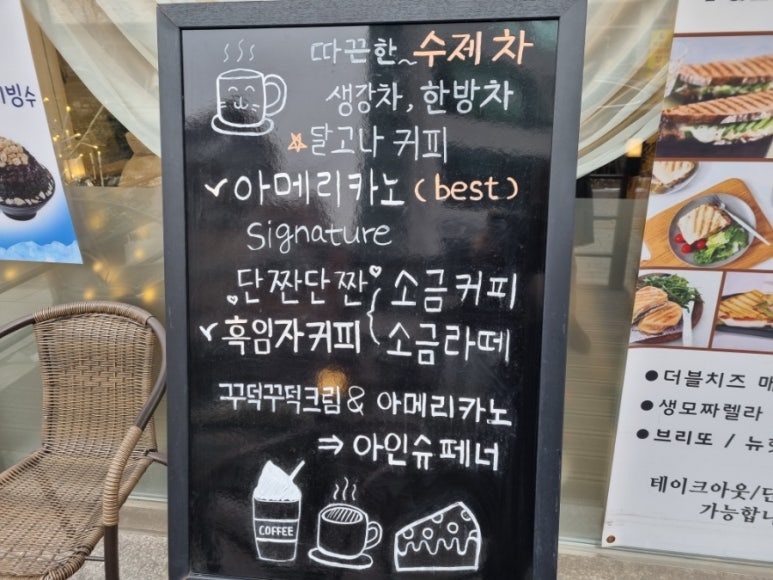 따끈한~ 수제 차
생강차, 한방차
달고나 커피
아메리카노 (best)
signature
단짠단짠 소금커피
소금라떼
흑임자커피
꾸덕꾸덕크림 & 아메리카노
⇒ 아인슈페너
COFFEE
빙수
●더블치즈
●생모짜렐라
●브리또 /
테이크아웃/